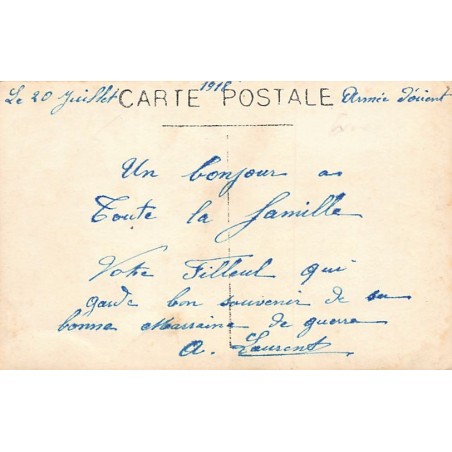 Le 20 Juillet 1918 Armée d'orient
CARTE POSTALE
Un bonjour a
Toute la famille
Votre Filleul qui
garde bon souvenir de sa
bonne Marraine de guerre
A. Laurent